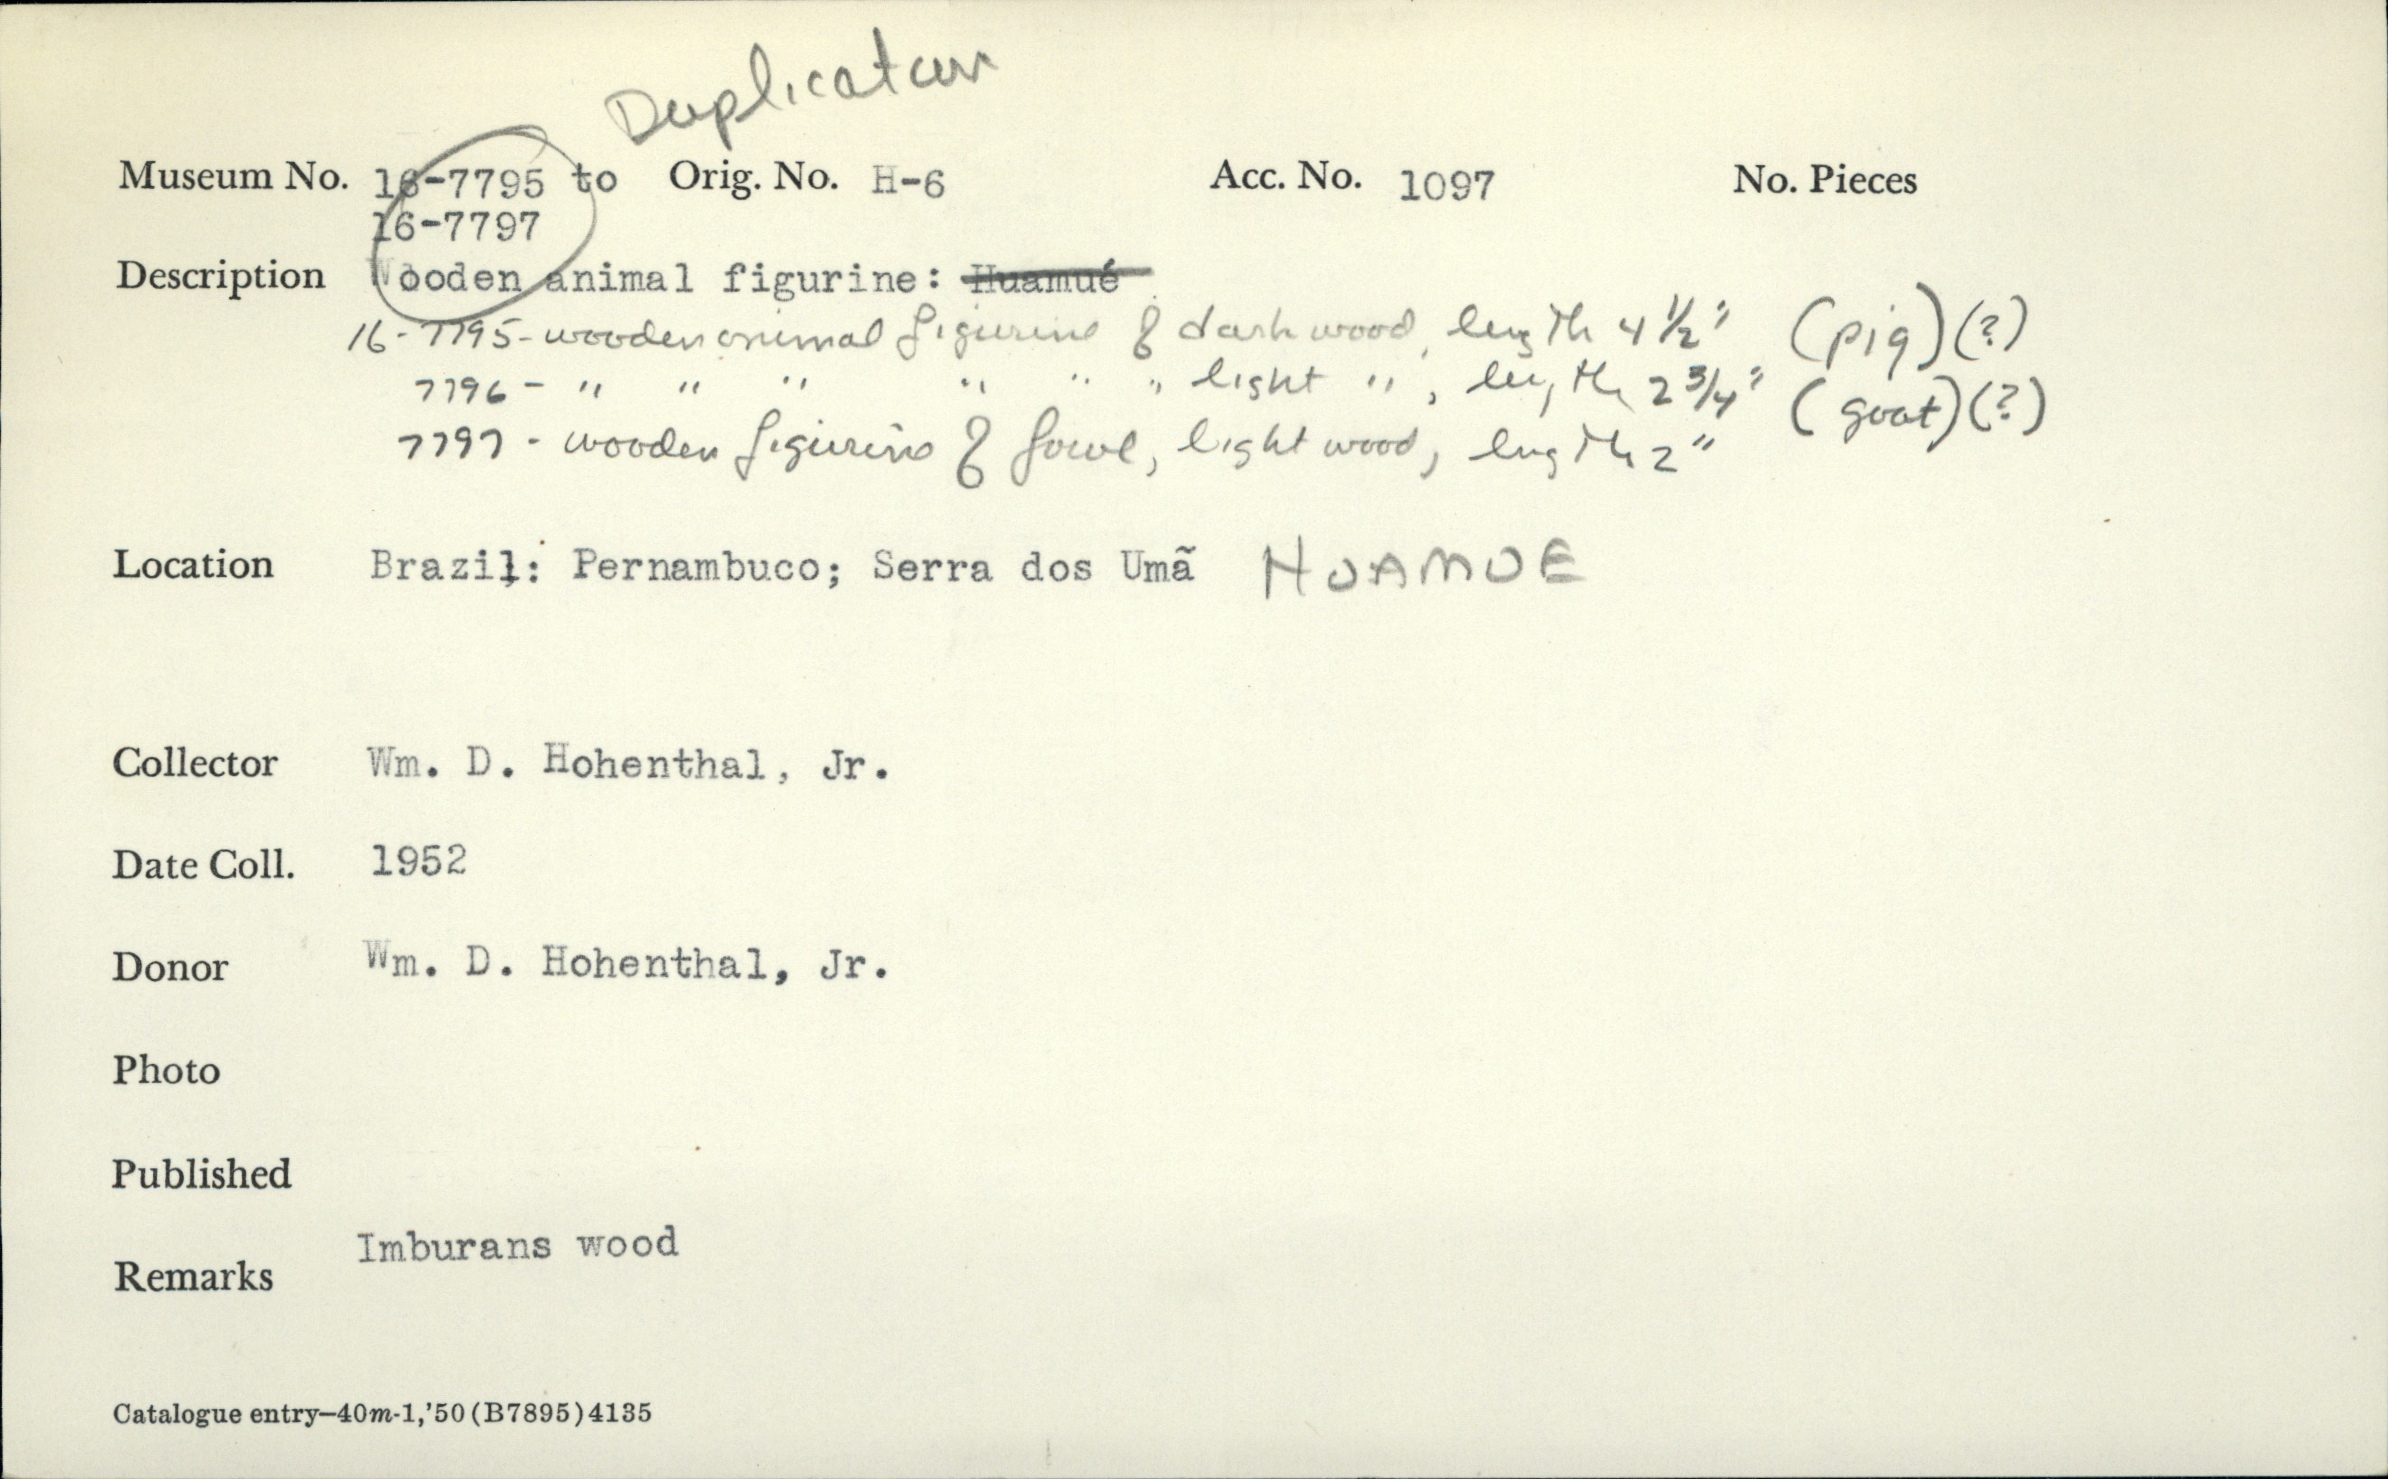 Duplication
Museum No. 16-7795 to Orig. No. H-6 Acc. No. 1097 No. Pieces
16-7797
Description Wooden animal figurine: Huamué
16-7795- wooden animal figurine of dark wood, length 4 1/2" (pig)(?)
7796 - " " " " " " light ", length 2 3/4" (goat)(?)
7797 - wooden figurine of fowl, light wood, length 2"
Location Brazil: Pernambuco; Serra dos Umã HUAMUE
Collector Wm. D. Hohenthal, Jr.
Date Coll. 1952
Donor Wm. D. Hohenthal, Jr.
Photo
Published
Remarks Imburans wood
Catalogue entry—40m-1,'50(B7895)4135